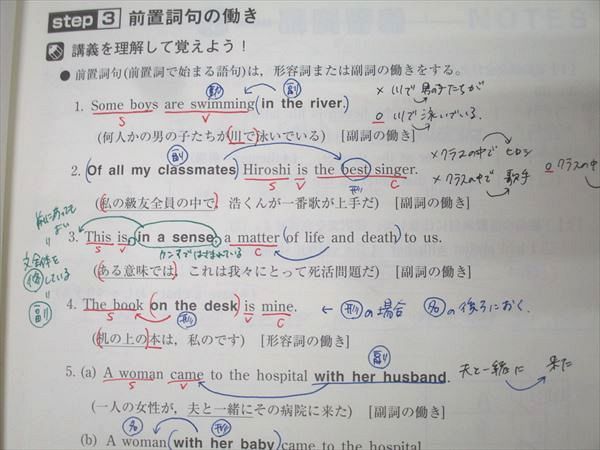 step 3 前置詞句の働き
講義を理解して覚えよう！
● 前置詞句(前置詞で始まる語句)は，形容詞または副詞の働きをする。
副
× 川で 男の子たちが
1. Some boys are swimming (in the river.)
S V
○ 川で 泳いでいる.
(何人かの男の子たちが川で泳いでいる) [副詞の働き]
副
× クラスの中で ヒロシ
2. (Of all my classmates) Hiroshi is the best singer.
S V 形 C
× クラスの中で 歌手
○ クラスの中
(私の級友全員の中で，浩くんが一番歌が上手だ) [副詞の働き]
前にあっても
よい
3. This is, in a sense, a matter (of life and death) to us.
S V カンマではさまれている C
文全体を
修している
副
(ある意味では，これは我々にとって死活問題だ) [副詞の働き]
4. The book (on the desk) is mine.
S 形 V C
← 形の場合 名の後ろにおく.
(机の上の本は，私のです) [形容詞の働き]
副
5. (a) A woman came to the hospital with her husband.
S V
夫と一緒に 来た
(一人の女性が，夫と一緒にその病院に来た) [副詞の働き]
名 形
(b) A woman (with her baby) came to the hospital.